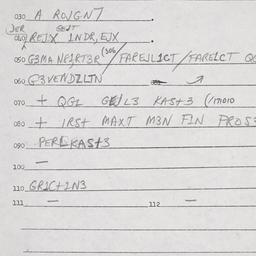 030 A ROJGN7
JER GEJT
040 REJX 1NDR, EJX
050 G3MA NR1RT3R (306/FAREJL1CT/FAREICT
060 G3VENDZLTN
070 + QG1 L3 KAST3 (/moro
080 + IRST MAXT M3N FIN PROS3
090 PERLKAST3
100 —
110 GR1C+1N3
111 — 112 —